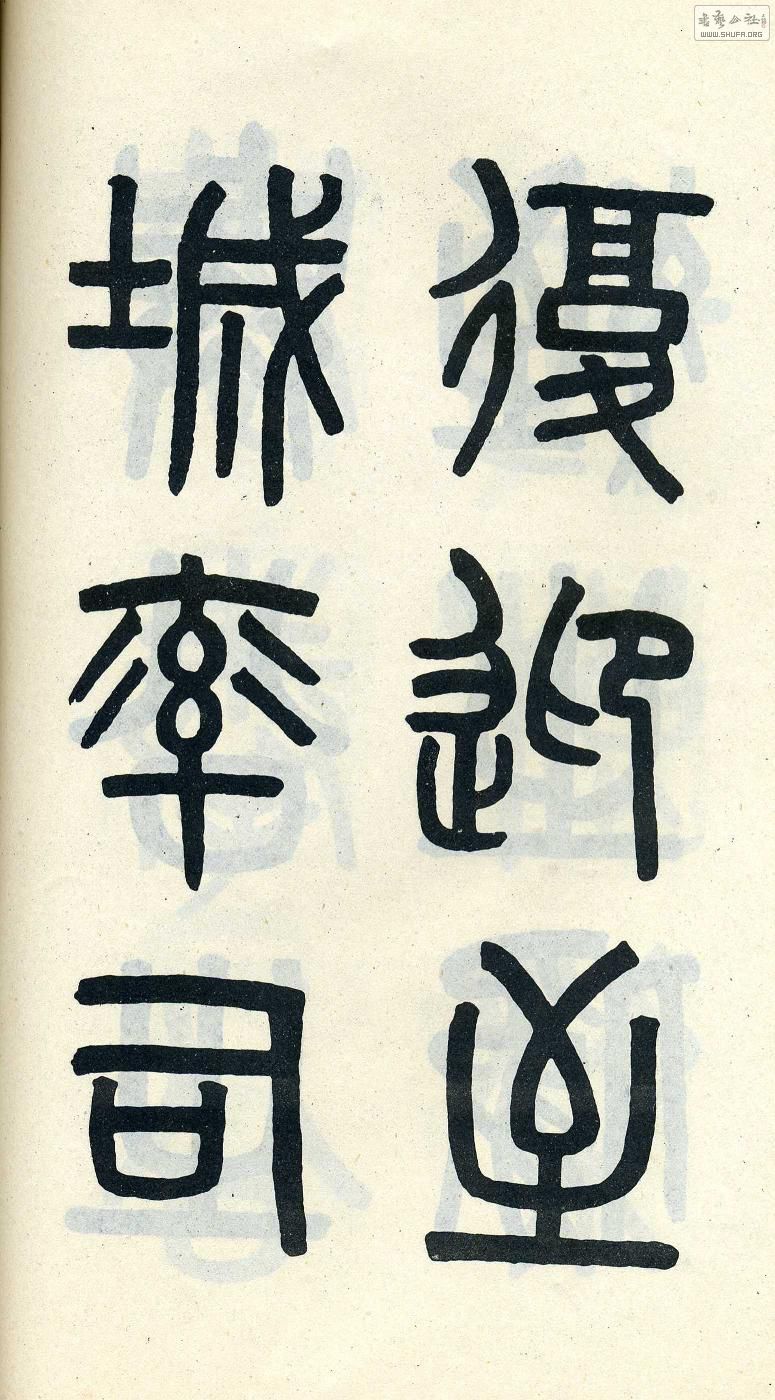 復迎至
城率司
书艺公社
WWW.SHUFA.ORG